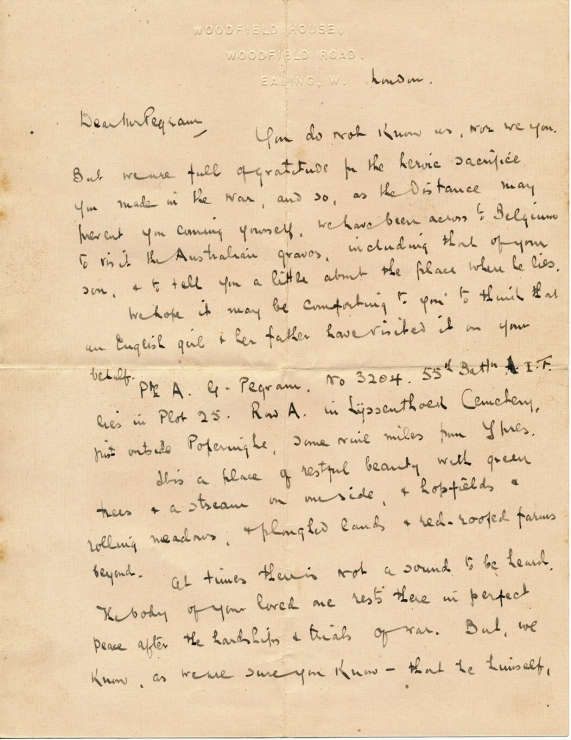 WOODFIELD HOUSE,
WOODFIELD ROAD,
EALING, W.
London.
Dear Mr Pegram,
You do not know us, nor we you.
But we are full of gratitude for the heroic sacrifice
you made in the war, and so, as the distance may
prevent you coming yourself, we have been across to Belgium
to visit the Australian graves, including that of your
son, & to tell you a little about the place where he lies.
We hope it may be comforting to you to think that
an English girl & her father have visited it on your
behalf.
Pte A. G. Pegram. No 3204. 55th Battn A.I.F.
lies in Plot 25. Row A. in Lijssenthoed Cemetery,
just outside Poperinghe, some nine miles from Ypres.
It is a place of restful beauty with green
trees & a stream on one side, & hopfields &
rolling meadows, & ploughed lands & red-roofed farms
beyond.
At times there is not a sound to be heard.
The body of your loved one rests there in perfect
peace after the hardships & trials of war. But, we
know, as we are sure you know – that he himself,